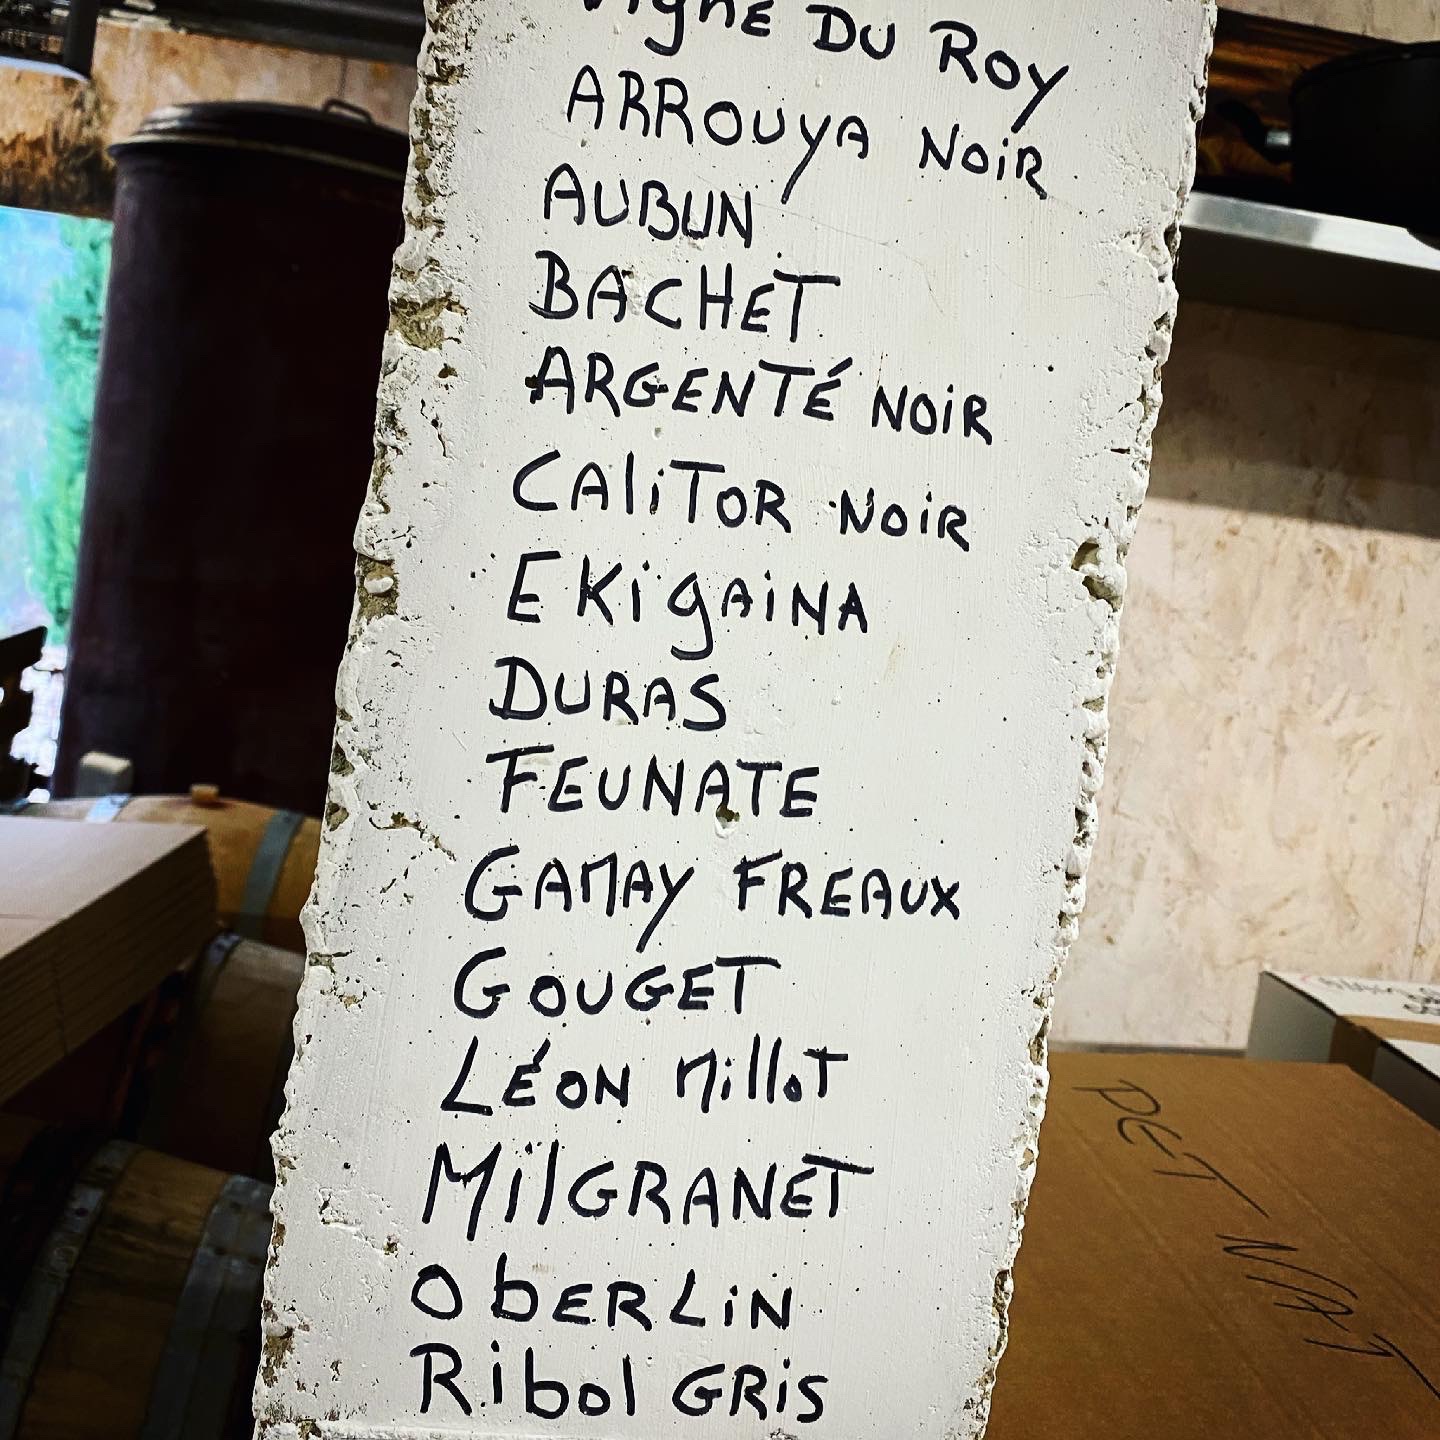 Vigne DU ROY
ARROUYA NOiR
AUBUN
BACHET
ARGENTÉ NOiR
CAliTOR NOiR
EKigAiNA
DURAS
FEUNATE
GAMAY FREAUX
GOUGET
LÉON Millot
MilGRANET
ObERLiN
Ribol GRiS
PET NAT